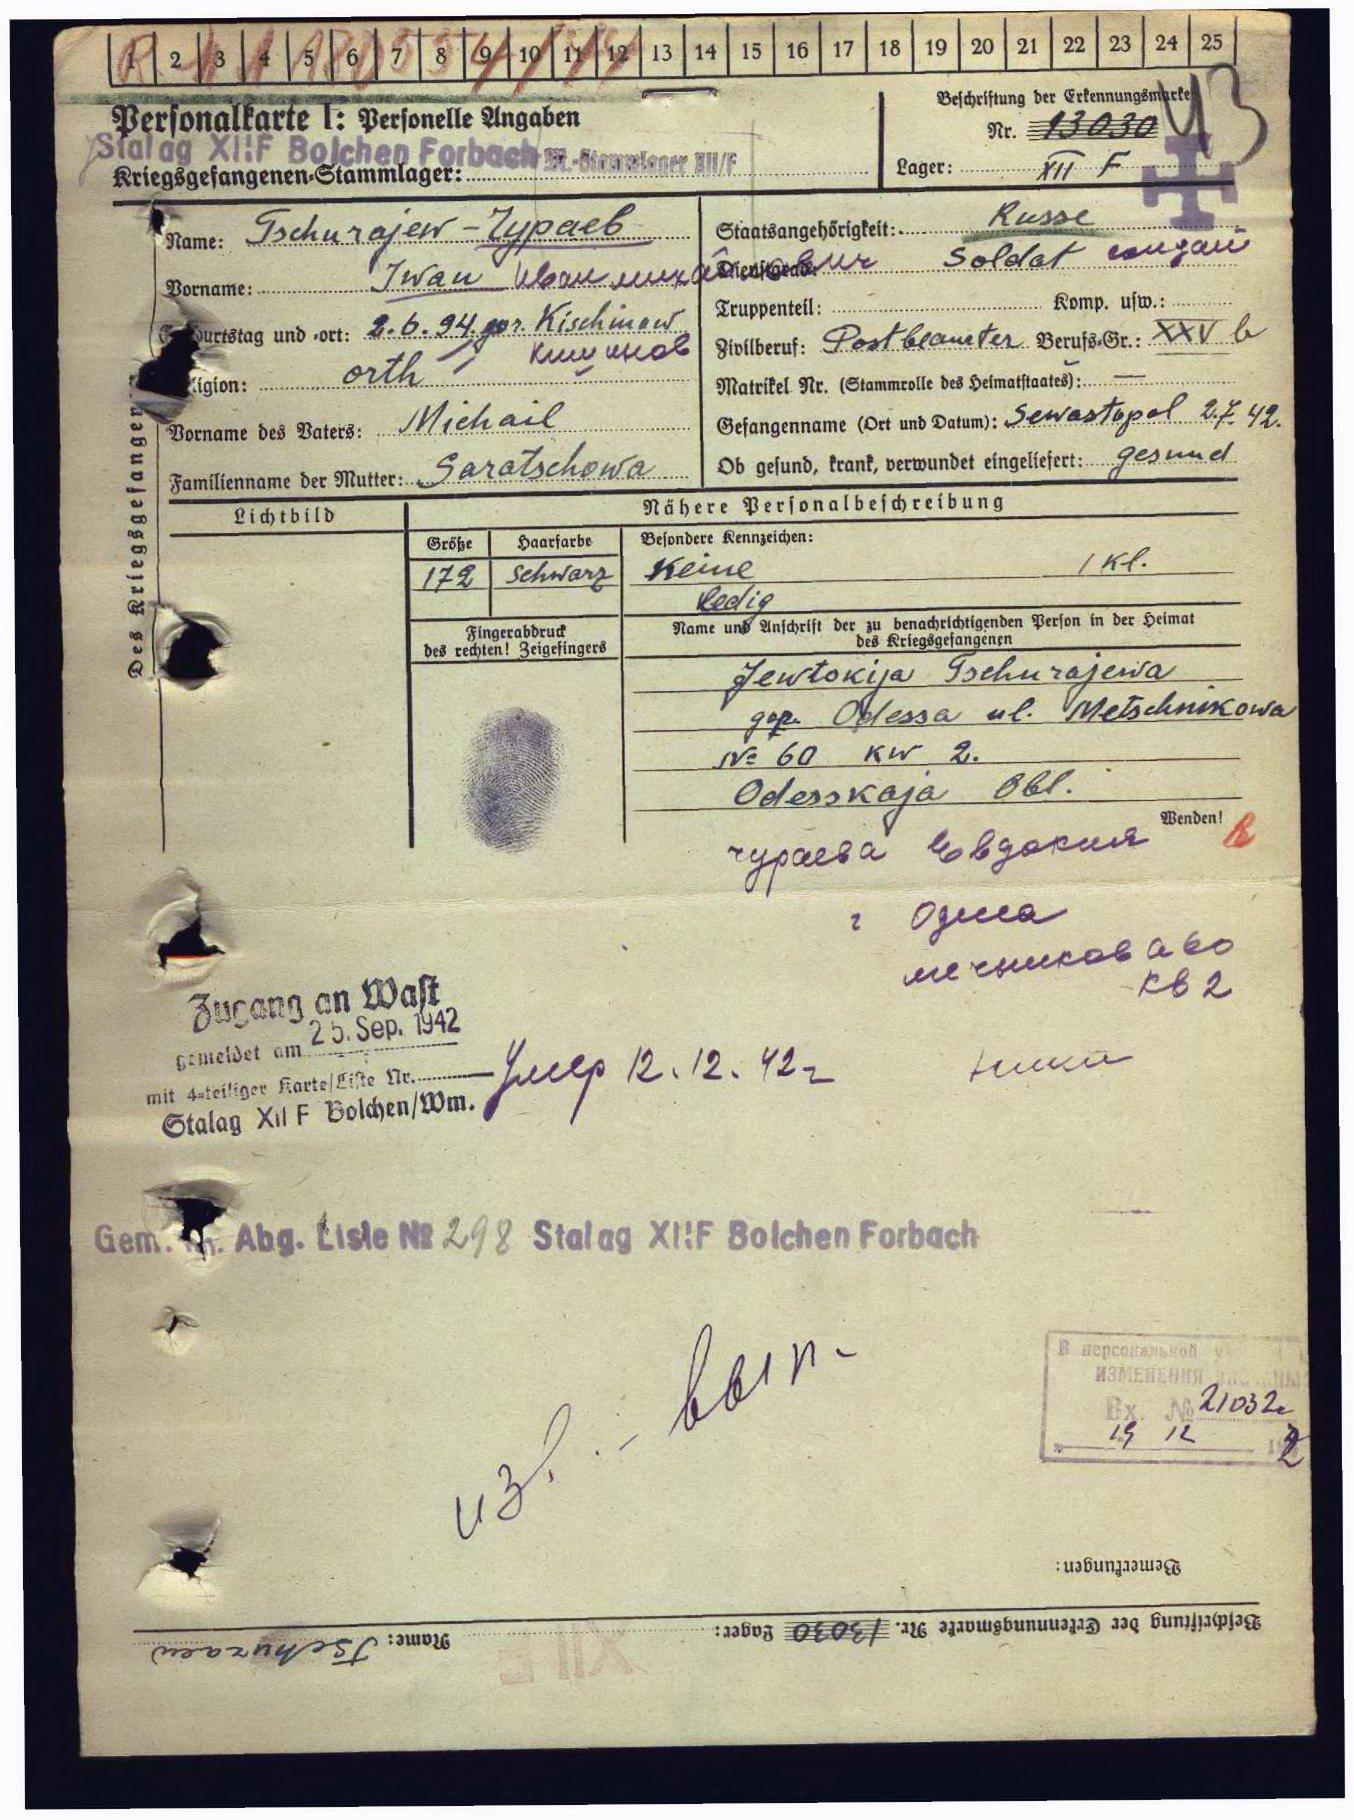 1 2 3 4 5 6 7 8 9 10 11 12 13 14 15 16 17 18 19 20 21 22 23 24 25
Personalkarte I: Personelle Angaben
Beschriftung der Erkennungsmarke
Nr. 13030
Stalag XIIF Bolchen Forbach M.-Stammlager XII/F
Kriegsgefangenen-Stammlager:
Lager: XII F
Name: Tschurajew - Чураев
Staatsangehörigkeit: Russe
Vorname: Iwan Иван Михайлович
Dienstgrad: Soldat солдат
Truppenteil: Komp. usw.:
Geburtstag und -ort: 2.6.94. гор. Kischinow
Кишинов
Zivilberuf: Postbeamter Berufs-Gr.: XXV b
Religion: orth
Matrikel Nr. (Stammrolle des Heimatstaates): —
Vorname des Vaters: Michail
Gefangenname (Ort und Datum): Sewastopol 2.7.42.
Familienname der Mutter: Saratschowa
Ob gesund, krank, verwundet eingeliefert: gesund
Des Kriegsgefangenen
Lichtbild
Nähere Personalbeschreibung
Größe Haarfarbe Besondere Kennzeichen:
172 schwarz Keine 1 Kl.
Ledig
Fingerabdruck
des rechten! Zeigefingers
Name und Anschrift der zu benachrichtigenden Person in der Heimat
des Kriegsgefangenen
Jewtokija Tschurajewa
гор. Odessa ul. Metschnikowa
№ 60 kw 2.
Odesskaja Obl.
Wenden!
Чураева Евдокия
г Одесса
Мечникова 60
кв 2
Zugang an Wast
gemeldet am 25. Sep. 1942
mit 4-teiliger Karte/Liste Nr.
Stalag XII F Bolchen/Wm.
Умер 12.12.42г
Gem. Abg. Liste № 298 Stalag XIIF Bolchen Forbach
изв. - вып -
В персональной
ИЗМЕНЕНИЯ
Вх. № 21032
19 12
Bemerkungen:
Beschriftung der Erkennungsmarke Nr. 13030 Lager:
Name: Tschuraew
XII F